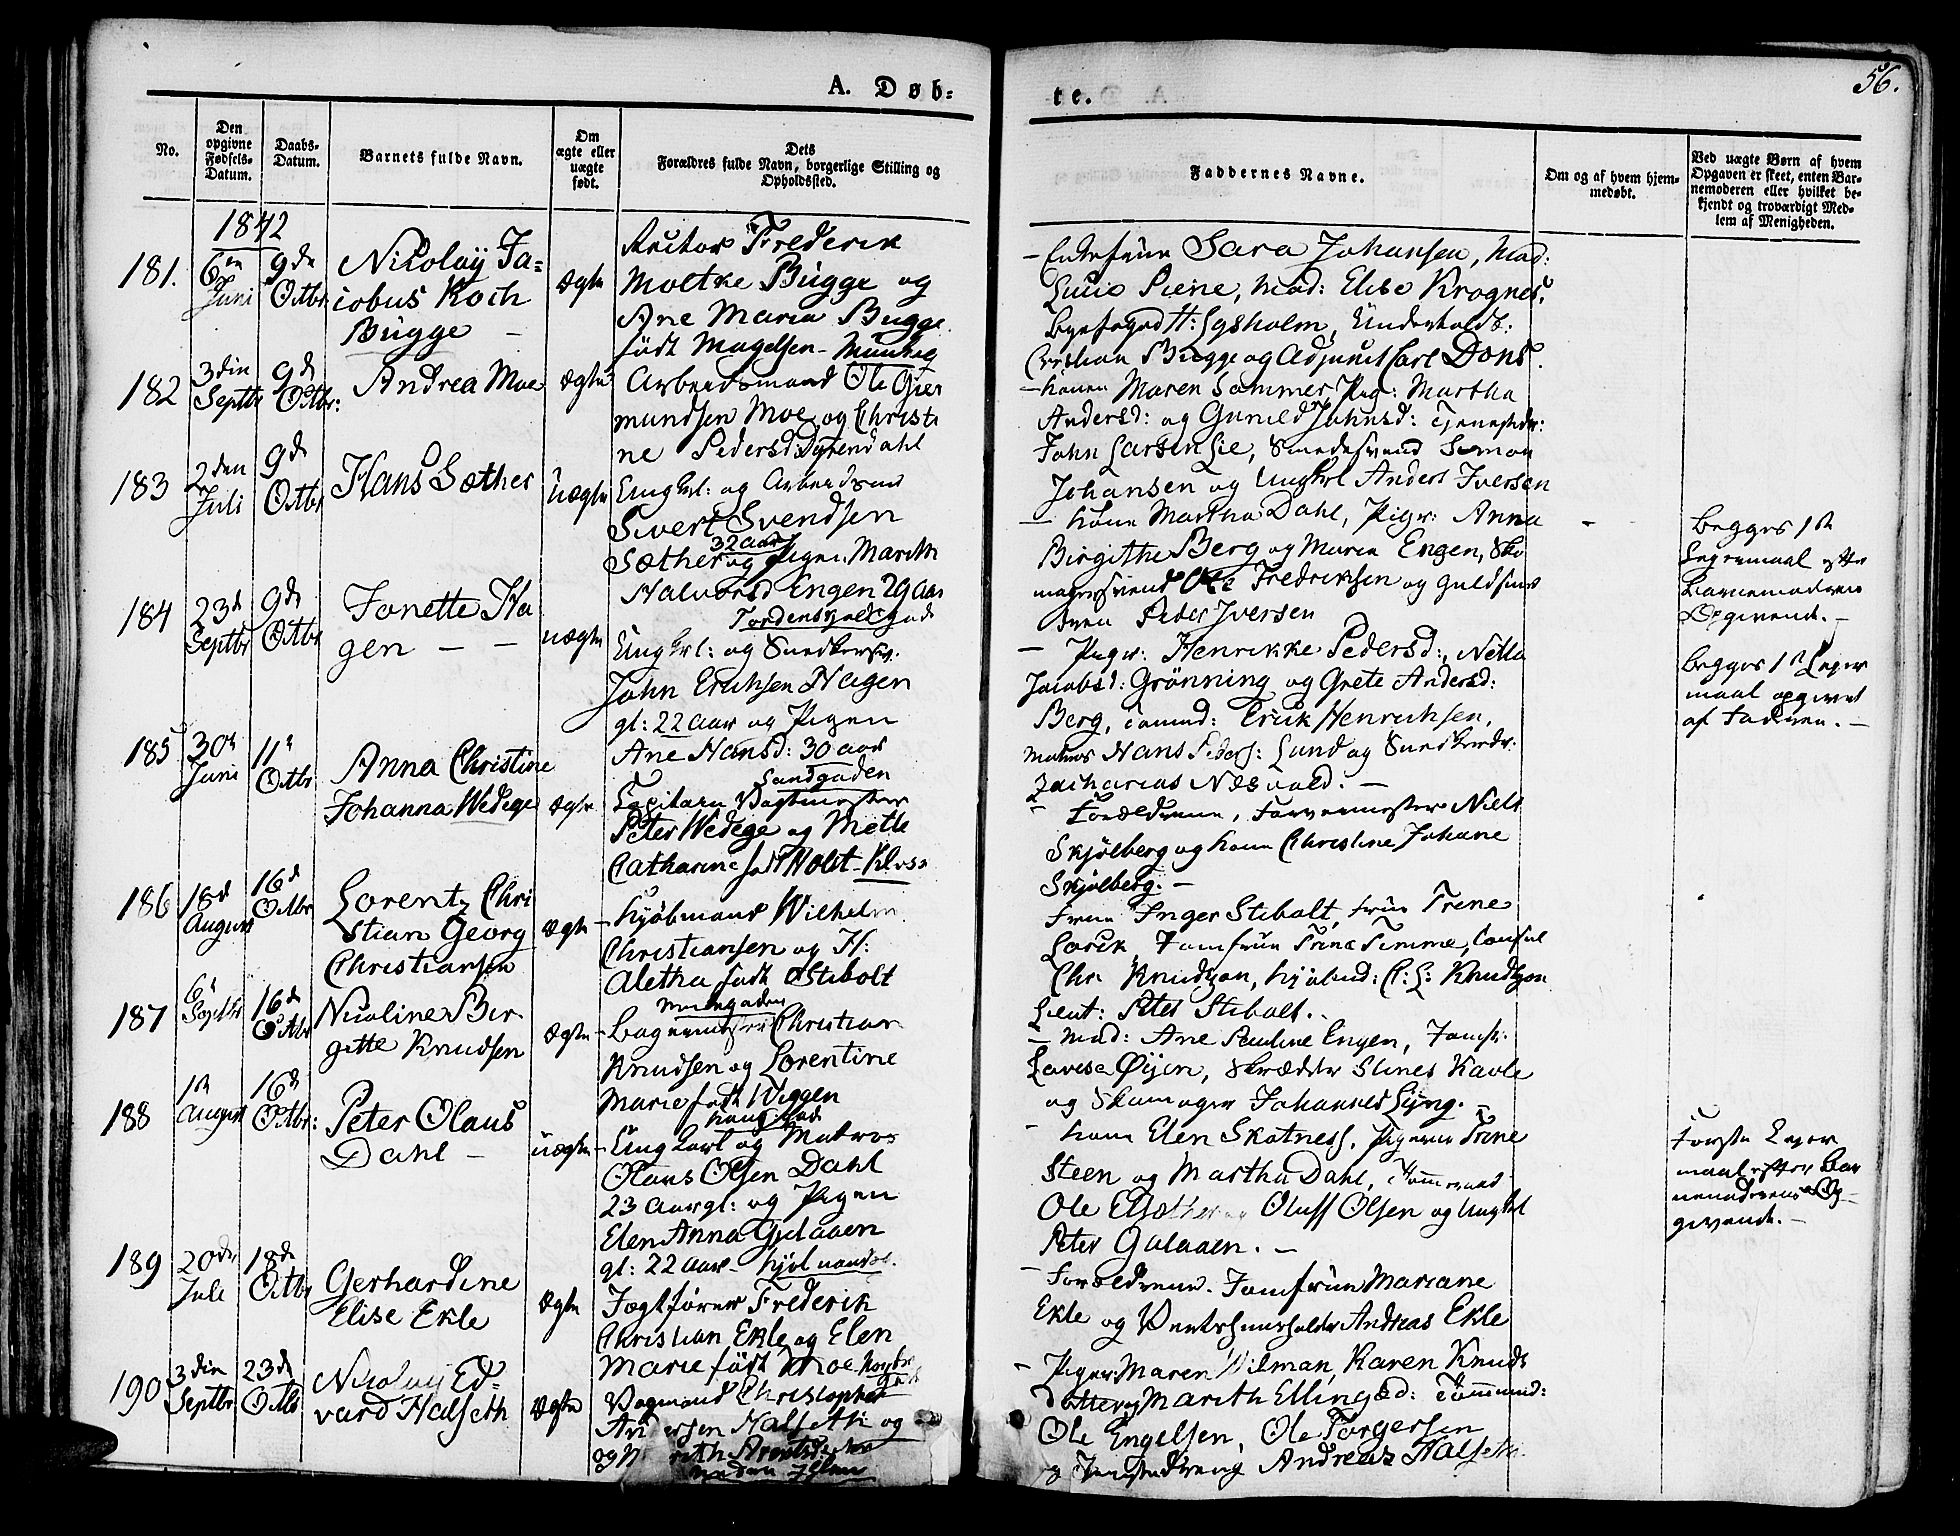 A. Døb=
te.
56.
No.
Den
opgivne
Fødsels-
Datum.
Daabs-
Datum.
Barnets fulde Navn.
Om
ægte eller
uægte
født.
Dets
Forældres fulde Navn, borgerlige Stilling og
Opholdssted.
Faddernes Navne.
Om og af hvem hjem-
medøbt.
Ved uægte Børn af hvem
Opgaven er skeet, enten Bar-
nemoderen eller hvilket be-
kjendt og troværdigt Med-
lem af Menigheden.
1842
181.
Juni
9de
Octbr
Nicolay Ja=
cobus Koch
Bugge —
ægte
Rector Frederik
Moltke Bugge og
Ane Maria Bugge
født Magelsen - Munkeg
— Enkefrue Sara Johansen, Mad:
Lucie Piene, Mad: Elise Krognes,
Byefoged H: Lysholm,
Christian Bugge og Adjunct Carl Dons.
182
3die
Septbr
9de
Octbr:
Andrea Moe
ægte
Arbeidsmand Ole Gjer
mundsen Moe og Christi
ne Pedersd. Dyrendahl
— Konen Maren Sommer, Pig: Martha
Andersd: og Gunild Johnsd: Tjenestedr:
John Larsen Lie, Smedesvend Simon
Johansen og Ungkrl Anders Iversen
183
2den
Juli
9de
Octbr
Hans Sæther
uægte
Ungkrl: og Arbeidsmd
Sivert Svendsen
32 Aar
Sæther og Pigen Marith
Halvorsd Engen 29 Aar
Tordenskjoldsgade
— Kone Martha Dahl, Piger: Anna
Birgithe Berg og Maria Engen, Sko
magersvend Ole Fredriksen og Guldsmed
dren Peder Iversen
Begges 1ste
Leiermaal efter
Barnemoderens
Opgivende. —
184
23de
Septbr
9de
Octbr
Jonette Ha
gen — —
uægte
Ungkrl: og Snedkersv.
John Erichsen Hagen
gl: 22 Aar og Pigen
Ane Hansd: 30 Aar
Sandgaden
— Piger: Henrikke Pedersd:, Nilla
Jacobsd: Grønning og Grete Andersd:
Berg, Erick Henrichsen,
Matros Hans Peders: Lund og Snedkerdr:
Zacharias Næsvold. —
Begges 1ste Leier
maal opgivet
af Faderen. —
185
30te
Juni
11te
Octbr
Anna Christine
Johanna Wedege
ægte
Vagtmester
Peter Wedege og Mette
Catharine født Holst-
— Forældrene, Farvermester Niels
Skjølberg og Kone Christine Johane
Skjølberg. —
186
18de
August
16de
Octbr
Lorentz Chri
stian Georg
Christiansen
ægte
Kjøbmand Wilhelm
Christiansen og H:
Aletha født Stibolt
Munkgaden
Frue Inger Stibolt, Frue Trine
Lorck, Jomfrue Trine Timme, Consul
Chr Knudtzon, Kjøbmd: C: L: Knudtzon
Lieut: Peter Stibolt.
187
6te
Septbr
16de
Octbr
Nicoline Bir
gitte Knudsen
ægte
Bagermester Christian
Knudsen og Lorentine
Marie født Wiggen
— Mad: Ane Pauline Engen, Jomfr:
Lovise Øyen, Skrædder Kavle
og Skomager Johannes Lyng. —
188
1ste
August
16de
Octbr:
Peter Olaus
Dahl —
uægte
Ungkarl og Matros
Olaus Olsen Dahl
23 Aar gl: og Pigen
Elen Anna Gulaaen
gl: 22 Aar -
— Kone Elen Skatness, Pigerne Trine
Steen og Martha Dahl,
Ole Oluff Olsen og Ungkrl
Peter Gulaaen. —
Første Leier
maal efter Bar
nemoderens Op-
givende. —
189
20de
Juli
18de
Octbr
Gerhardine
Elise Ekle
ægte
Jagtfører Frederik
Christian Ekle og Elen
Marie født Moe
— Forældrene. Jomfrue Mariane
Ekle og Andreas Ekle
190
3die
Septbr
23de
Octbr
Nicolay Ed=
vard Halseth
ægte
Vogmand Christopher
Andersen Halseth og
— Piger: Maren Wilman, Karen Knuds
datter og Marith Ellingsd: Tømmermd:
Ole Engelsen, Ole Torgersen
og Tjenestedreng Andreas Halseth